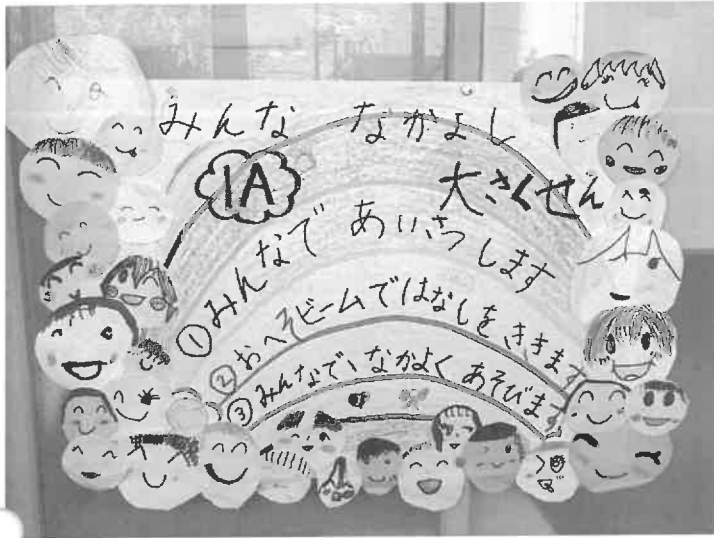 みんな なかよし
1A
大さくせん
①みんなであいさつします
②おへそビームではなしをききます
③みんなで、なかよくあそびます